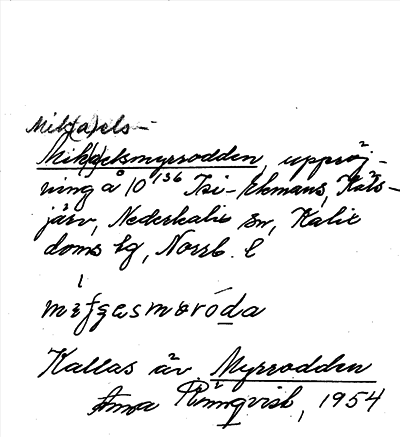 Mik(a)els-
Mik(a)elsmyrrodden, uppröj-
ning å 10¹³⁶ Isi-Ekmans, Käts-
järv, Nederkalix sn, Kalix
doms lg, Norrb. l
Kallas är Myrrodden
Anna Rönnqvist, 1954